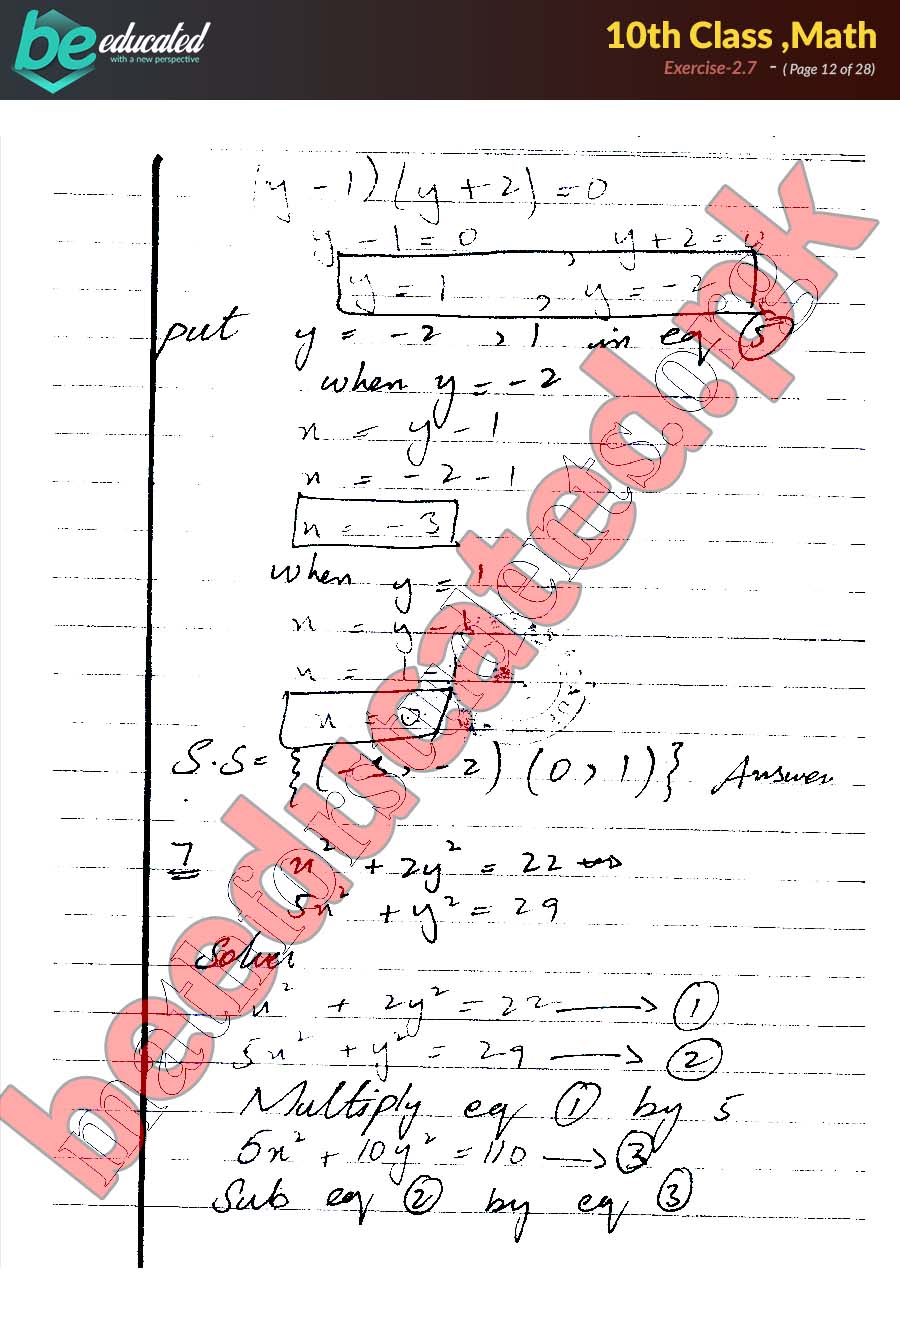 be educated
with a new perspective
10th Class ,Math
Exercise-2.7 - ( Page 12 of 28)
(y - 1) (y + 2) = 0
y - 1 = 0 , y + 2 = 0
y = 1 , y = -2
put y = -2 , 1 in eq (5)
when y = -2
x = y - 1
x = -2 - 1
x = -3
when y = 1
x = y - 1
x = 1 - 1
x = 0
S.S = {(-3, -2) (0, 1)} Answer
7 x² + 2y² = 22
5x² + y² = 29
Solve
x² + 2y² = 22 → (1)
5x² + y² = 29 → (2)
Multiply eq (1) by 5
5x² + 10y² = 110 → (3)
Sub eq (2) by eq (3)
beeducated.pk